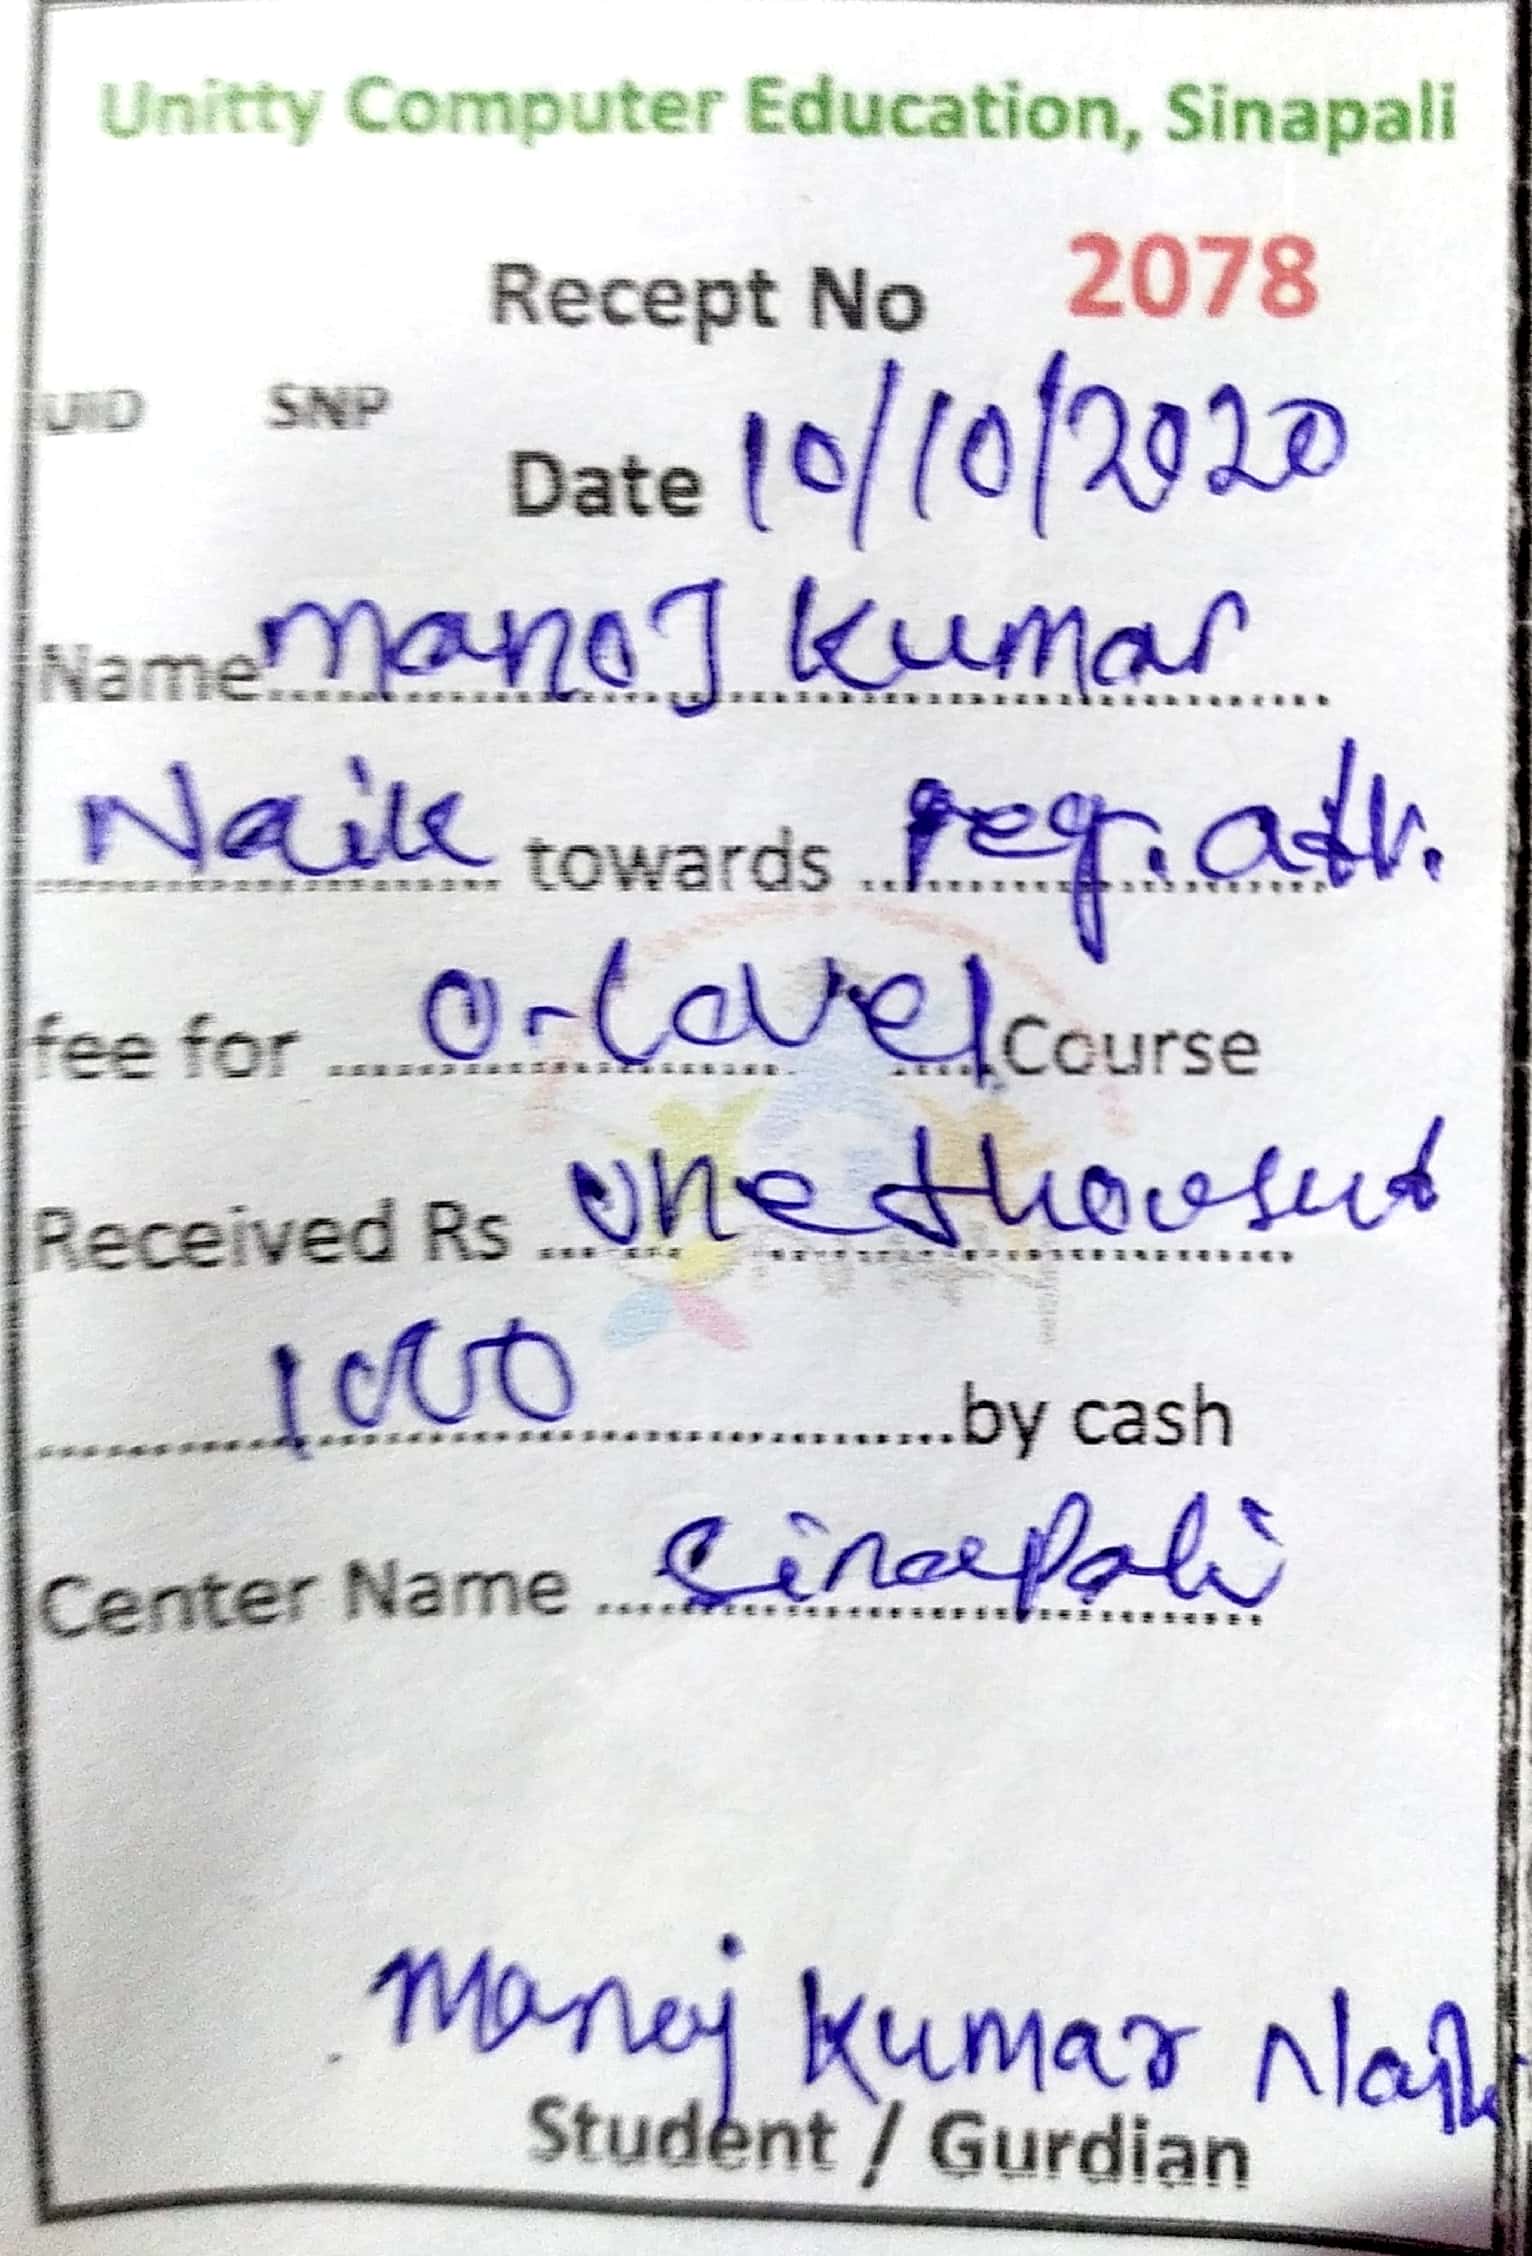 Unitty Computer Education, Sinapali
Recept No 2078
UID SNP
Date 10/10/2020
Name manoJ Kumar
Naik towards reg.
fee for O-Level Course
Received Rs one
1000 by cash
Center Name Sinapali
Manoj Kumar Naik
Student / Gurdian